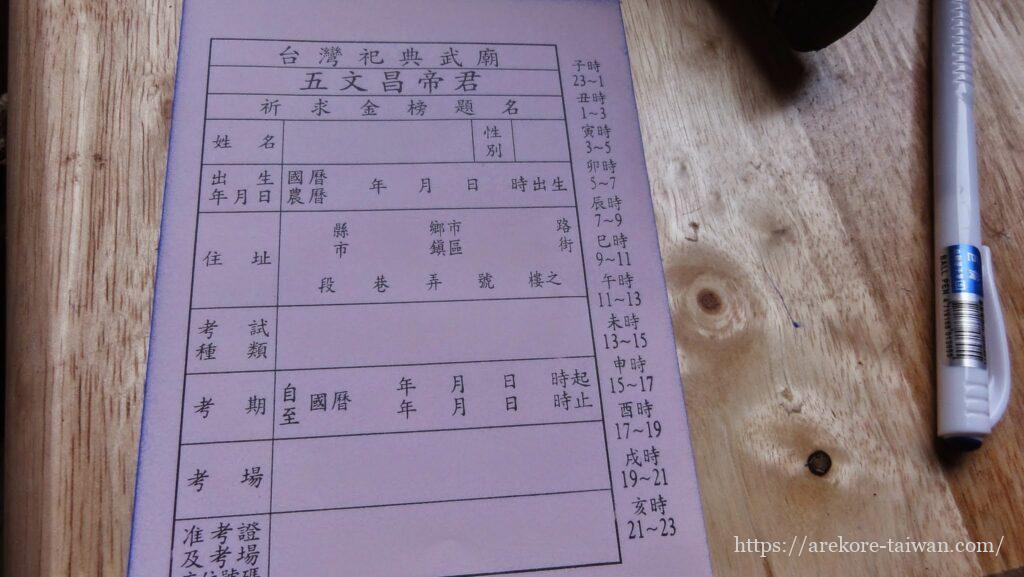 台灣祀典武廟
五文昌帝君
祈求金榜題名
姓名 性別
出生年月日 國曆 農曆 年 月 日 時出生
住址 縣市 鄉市鎮區 路街
段 巷 弄 號 樓之
考試種類
考期 自至 國曆 年 月 日 時起
年 月 日 時止
考場
准考證
及考場
子時
23~1
丑時
1~3
寅時
3~5
卯時
5~7
辰時
7~9
巳時
9~11
午時
11~13
未時
13~15
申時
15~17
酉時
17~19
戌時
19~21
亥時
21~23
BALL PEN
https://arekore-taiwan.com/